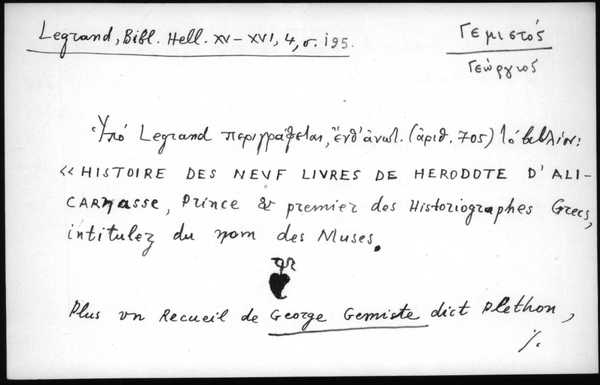 Legrand, Bibl. Hell. XV-XVI, 4, σ. 195.
Γεμιστός
Γεώργιος
Ὑπό Legrand περιγράφεται, ἔνθ' ἀνωτ. (ἀριθ. 705) τό βιβλίον:
«HISTOIRE DES NEUF LIVRES DE HERODOTE D'ALI-
CARNasse, Prince & premier des Historiographes Grecs,
intitulez du nom des Muses.
Plus vn Recueil de George Gemiste dict Plethon,
%.